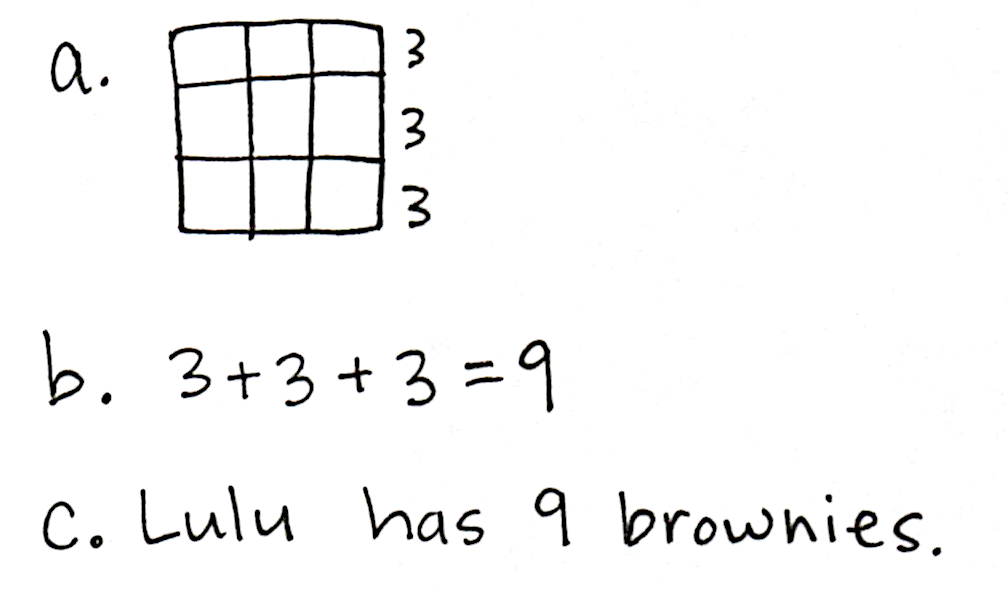 a.
3
3
3
b. 3+3+3=9
c. Lulu has 9 brownies.